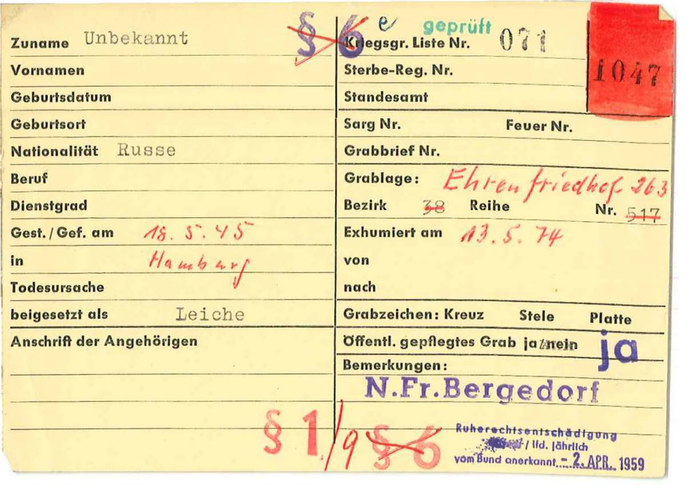 § 6 e geprüft
Zuname Unbekannt
Kriegsgr. Liste Nr. 071
1047
Vornamen
Sterbe-Reg. Nr.
Geburtsdatum
Standesamt
Geburtsort
Sarg Nr. Feuer Nr.
Nationalität Russe
Grabbrief Nr.
Beruf
Grablage: Ehrenfriedhof 263
Dienstgrad
Bezirk 38 Reihe Nr. 517
Gest./Gef. am 18. 5. 45
Exhumiert am 13. 5. 74
in Hamburg
von
Todesursache
nach
beigesetzt als Leiche
Grabzeichen: Kreuz Stele Platte
Anschrift der Angehörigen
Öffentl. gepflegtes Grab ja/nein ja
Bemerkungen:
N.Fr.Bergedorf
§ 1/9 § 6
Ruherechtsentschädigung
/ lfd. jährlich
vom Bund anerkannt - 2. APR. 1959